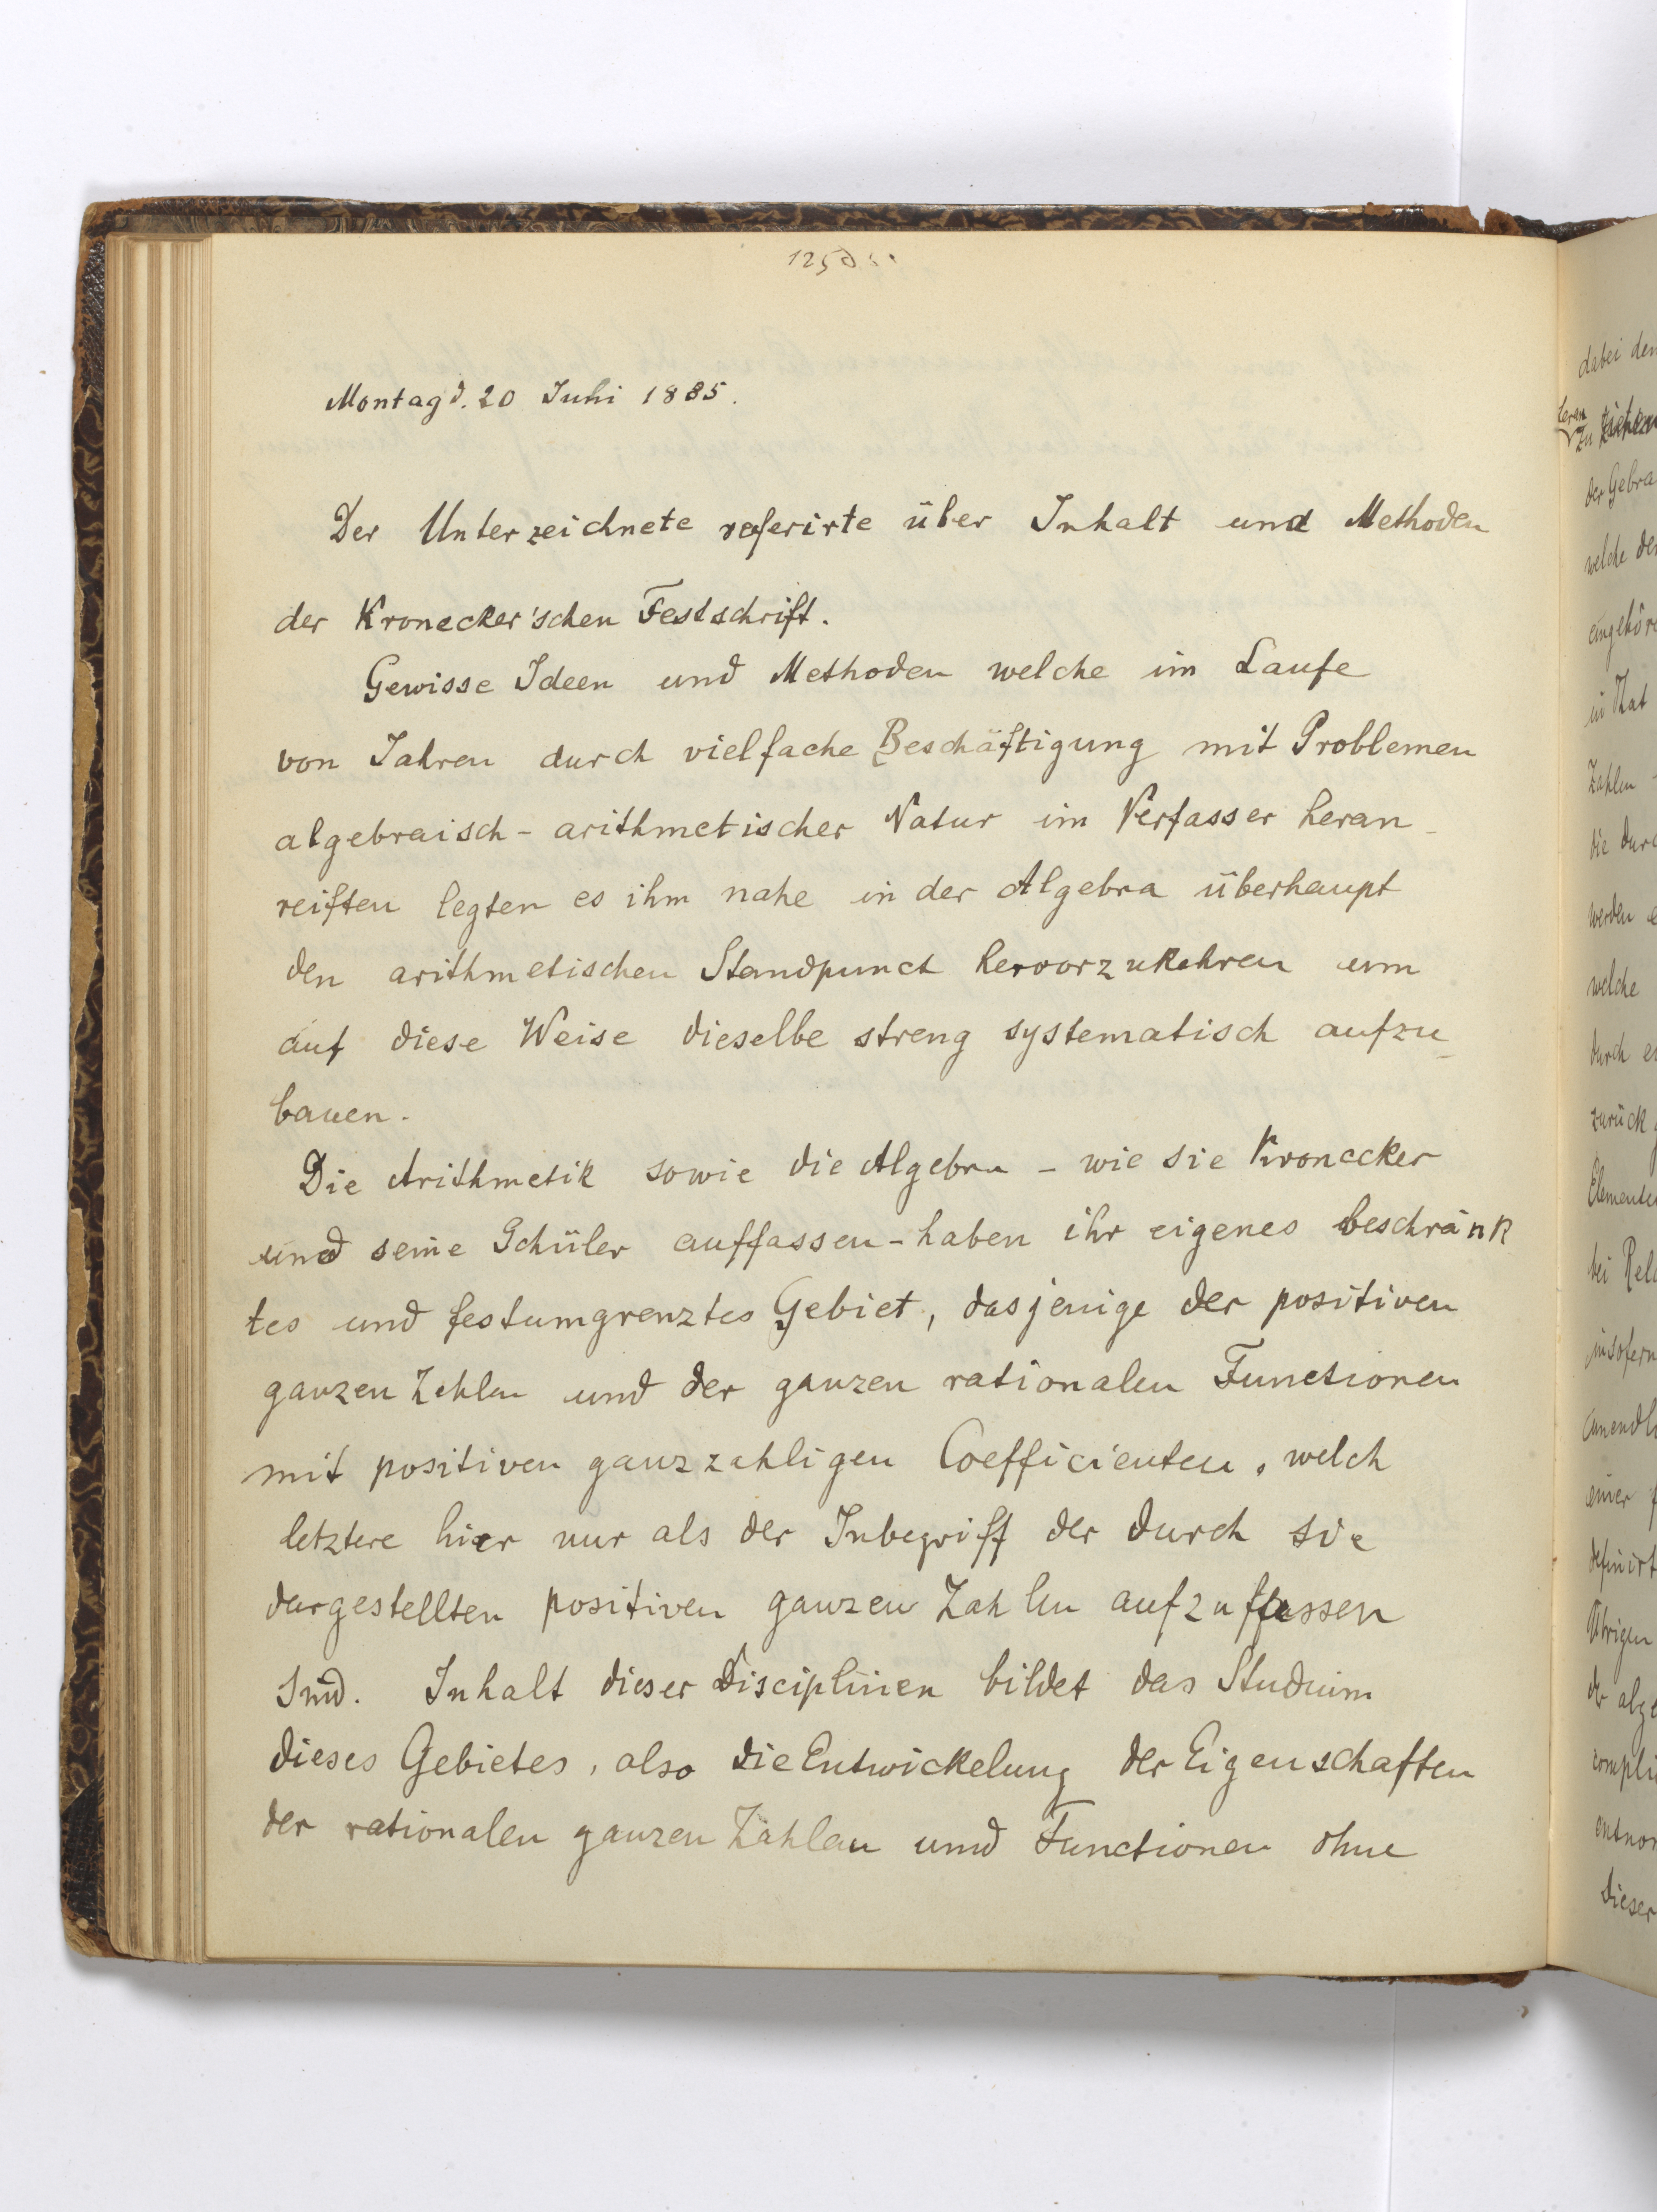 Montag d. 20 Juli 1885.
Der Unterzeichnete referirte über Inhalt und Methoden
der Kronecker'schen Festschrift.
Gewisse Ideen und Methoden welche im Laufe
von Jahren durch vielfache Beschäftigung mit Problemen
algebraisch-arithmetischer Natur im Verfasser heran-
reiften legten es ihm nahe in der Algebra überhaupt
den arithmetischen Standpunct hervorzukehren um
auf diese Weise dieselbe streng systematisch aufzu-
bauen.
Die Arithmetik sowie die Algebra - wie sie Kronecker
und seine Schüler auffassen - haben ihr eigenes beschränk
tes und festumgrenztes Gebiet, dasjenige der positiven
ganzen Zahlen und der ganzen rationalen Functionen
mit positiven ganzzahligen Coefficienten, welch
letztere hier nur als der Inbegriff der durch sie
dargestellten positiven ganzen Zahlen aufzufassen
sind. Inhalt dieser Disciplinen bildet das Studium
dieses Gebietes, also die Entwickelung der Eigenschaften
der rationalen ganzen Zahlen und Functionen ohne
dabei den
der Gebra
welche der
in That
Zahlen
die durc
werden e
welche
durch ei
zurück
Elemente
bei Rela
insofern
unendli
einer f
definirt
Übrigen
der abge
compli
entnor
dieser